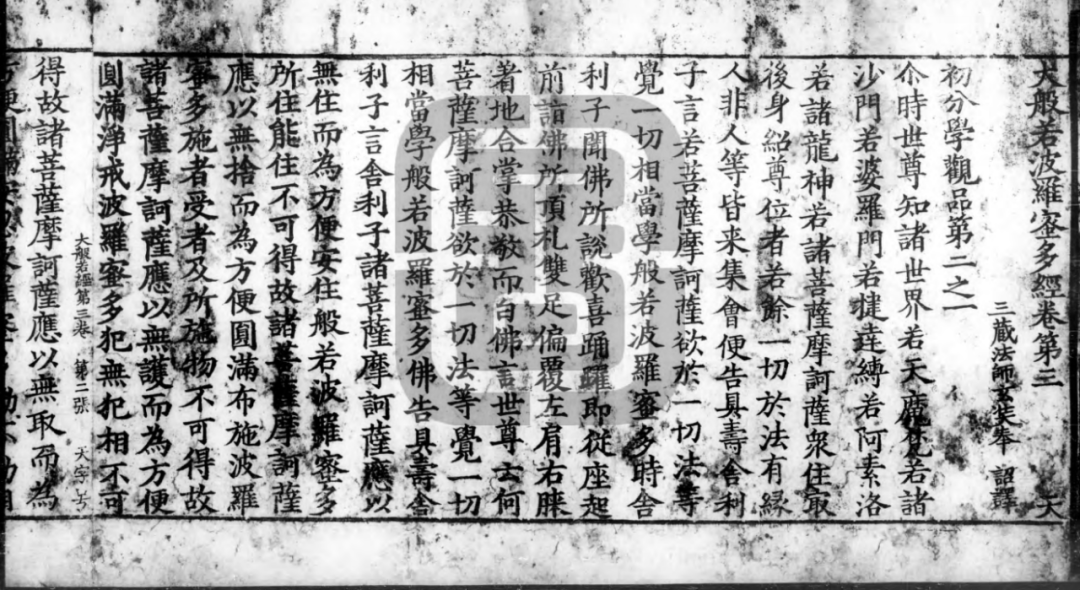 大般若波羅蜜多經卷第三 天
三藏法師玄奘奉 詔譯
初分學觀品第二之一
尒時世尊知諸世界若天魔梵若諸
沙門若婆羅門若揵達縛若阿素洛
若諸龍神若諸菩薩摩訶薩衆住㝡
後身紹尊位者若餘一切於法有緣
人非人等皆来集會便告具壽舍利
子言若菩薩摩訶薩欲於一切法等
覺一切相當學般若波羅蜜多時舍
利子聞佛所說歡喜踊躍即從座起
前詣佛所頂礼雙足偏覆左肩右膝
著地合掌恭敬而白佛言世尊云何
菩薩摩訶薩欲於一切法等覺一切
相當學般若波羅蜜多佛告具壽舍
利子言舍利子諸菩薩摩訶薩應以
無住而為方便安住般若波羅蜜多
所住能住不可得故諸菩薩摩訶薩
應以無捨而為方便圓滿布施波羅
蜜多施者受者及所施物不可得故
諸菩薩摩訶薩應以無護而為方便
圓滿淨戒波羅蜜多犯無犯相不可
大般若經第三卷 第二張 天字号
得故諸菩薩摩訶薩應以無取而為